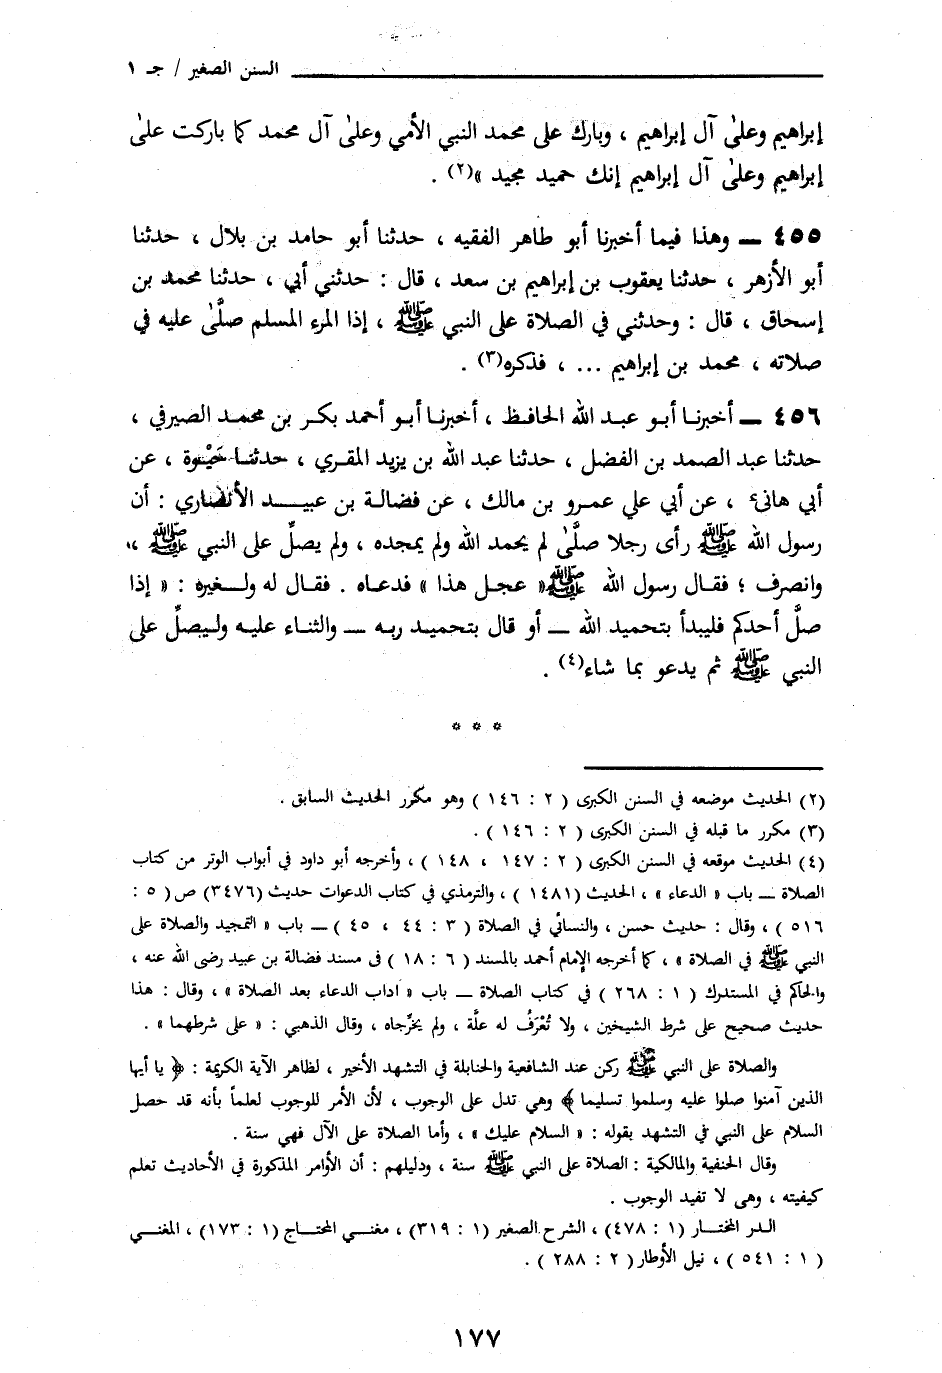 السنن الصغير / جـ ١
إبراهيم وعلىٰ آل إبراهيم ، وبارك على محمد النبي الأمي وعلىٰ آل محمد كما باركت علىٰ
إبراهيم وعلىٰ آل إبراهيم إنك حميد مجيد »(٢) .
٤٥٥ ــ وهذا فيما أخبرنا أبو طاهر الفقيه ، حدثنا أبو حامد بن بلال ، حدثنا
أبو الأزهر ، حدثنا يعقوب بن إبراهيم بن سعد ، قال : حدثني أبي ، حدثنا محمد بن
إسحاق ، قال : وحدثني في الصلاة على النبي ﷺ ، إذا المرء المسلم صلَّىٰ عليه في
صلاته ، محمد بن إبراهيم ... ، فذكره(٣) .
٤٥٦ ــ أخبرنـا أبـو عبـد الله الحافـظ ، أخبرنـا أبـو أحمد بكـر بن محمـد الصيرفي ،
حدثنا عبد الصمد بن الفضل ، حدثنا عبد الله بن يزيد المقـري ، حدثنـا حَيْـوة ، عن
أبي هانىء ، عن أبي علي عمرو بن مالك ، عن فضالة بن عبيـــد الأنصاري : أن
رسول الله ﷺ رأى رجلا صلَّىٰ لم يحمد الله ولم يمجده ، ولم يصلِّ على النبي ﷺ ،
وانصرف ؛ فقـال رسول الله ﷺ « عجـل هذا » فدعـاه . فقـال له ولـغيره : « إذا
صلَّ أحدكم فليبدأ بتحميد الله ــ أو قال بتحميـد ربـه ــ والثناء عليـه ولـيصلِّ على
النبي ﷺ ثم يدعو بما شاء(٤) .
* * *
(٢) الحديث موضعه في السنن الكبرى ( ٢ : ١٤٦ ) وهو مكرر الحديث السابق .
(٣) مكرر ما قبله في السنن الكبرى ( ٢ : ١٤٦ ) .
(٤) الحديث موقعه في السنن الكبرى ( ٢ : ١٤٧ ، ١٤٨ ) ، وأخرجه أبو داود في أبواب الوتر من كتاب
الصلاة ــ باب « الدعاء » ، الحديث (١٤٨١ ) ، والترمذي في كتاب الدعوات حديث (٣٤٧٦) ص ( ٥ :
٥١٦ ) ، وقال : حديث حسن ، والنسائي في الصلاة ( ٣ : ٤٤ ، ٤٥ ) ــ باب « التمجيد والصلاة على
النبي ﷺ في الصلاة » ، كما أخرجه الإمام أحمد بالمسند ( ٦ : ١٨ ) فى مسند فضالة بن عبيد رضى الله عنه ،
والحاكم في المستدرك ( ١ : ٢٦٨ ) في كتاب الصلاة ــ باب « اداب الدعاء بعد الصلاة » ، وقال : هذا
حديث صحيح على شرط الشيخين ، ولا تُعْرَفُ له علَّة ، ولم يخرِّجاه ، وقال الذهبي : « على شرطهما » .
والصلاة على النبي ﷺ ركن عند الشافعية والحنابلة في التشهد الأخير ، لظاهر الآية الكريمة : ﴿ يا أيها
الذين آمنوا صلوا عليه وسلموا تسليما ﴾ وهي تدل على الوجوب ، لأن الأمر للوجوب لعلماً بأنه قد حصل
السلام على النبي في التشهد بقوله : « السلام عليك » ، وأما الصلاة على الآل فهي سنة .
وقال الحنفية والمالكية : الصلاة على النبي ﷺ سنة ، ودليلهم : أن الأوامر المذكورة في الأحاديث تعلم
كيفيته ، وهى لا تفيد الوجوب .
الـدر المختـار (١ : ٤٧٨) ، الشرح الصغير (١ : ٣١٩) ، مغنـي المحتـاج (١ : ١٧٣) ، المغنـي
( ١ : ٥٤١ ) ، نيل الأوطار ( ٢ : ٢٨٨ ) .
١٧٧